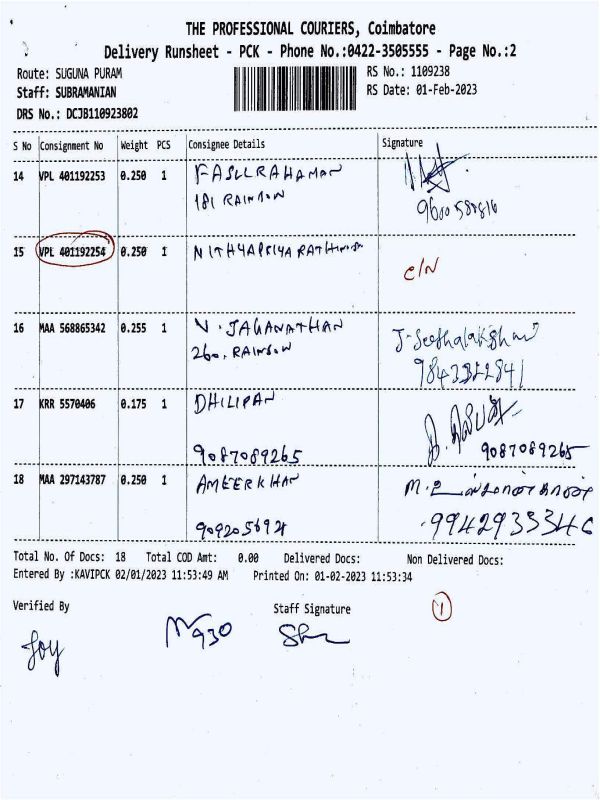 THE PROFESSIONAL COURIERS, Coimbatore
Delivery Runsheet - PCK - Phone No.:0422-3505555 - Page No.:2
Route: SUGUNA PURAM
RS No.: 1109238
Staff: SUBRAMANIAN
RS Date: 01-Feb-2023
DRS No.: DCJB110923802
S No Consignment No Weight PCS Consignee Details Signature
14 VPL 401192253 0.250 1 FASLLRAHAMAN
181 RAINBOW
9600580816
15 VPL 401192254 0.250 1 NITHYAPRIYA
C/N
16 MAA 568865342 0.255 1 V. JAGANATHAN
260. RAINBOW
J. Seethalakshmi
9843322841
17 KRR 5570406 0.175 1 DHILIPAN
9087089265
9087089265
18 MAA 297143787 0.250 1 AMEERKHAN
9942933346
Total No. Of Docs: 18 Total COD Amt: 0.00 Delivered Docs: Non Delivered Docs:
Entered By :KAVIPCK 02/01/2023 11:53:49 AM Printed On: 01-02-2023 11:53:34
Verified By Staff Signature
1
Joy
930